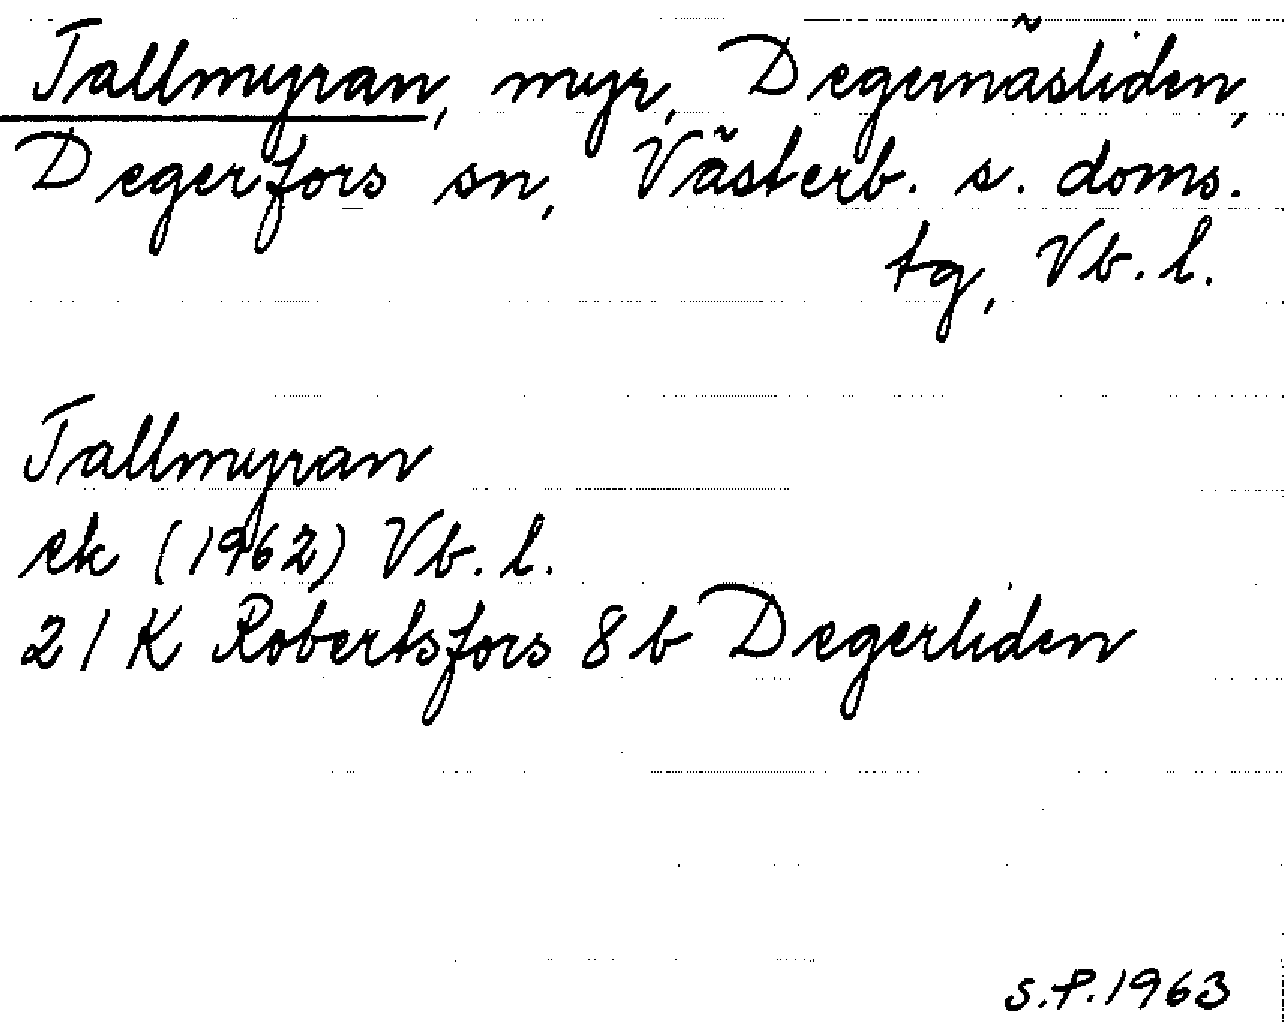 Tallmyran, myr, Degernäsliden,
Degerfors sn, Västerb. s. doms.
tg, Vb. l.
Tallmyran
ek (1962) Vb. l.
21 K Robertsfors 8 b Degerliden
S.P. 1963